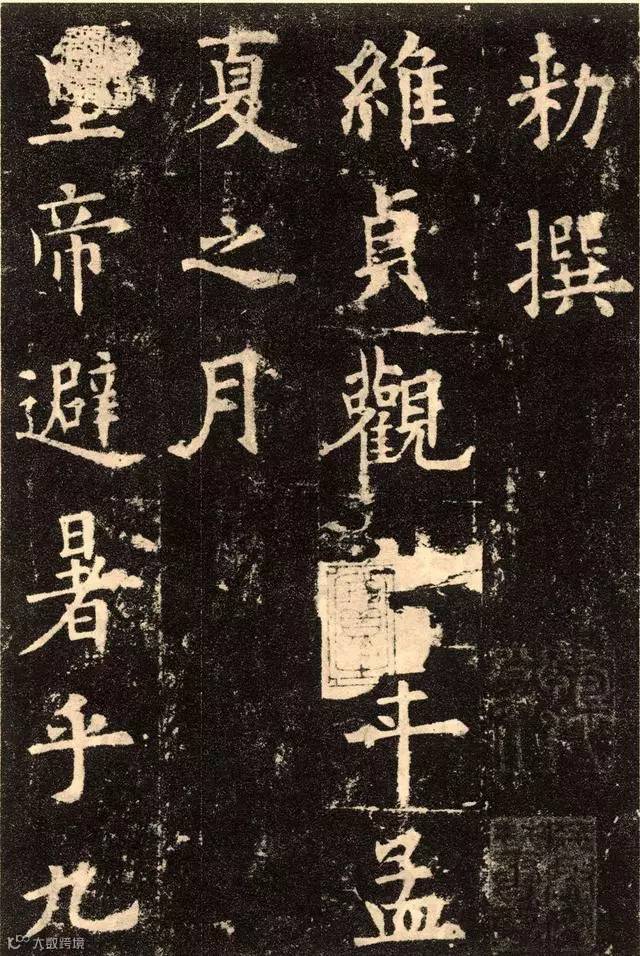 勅撰
維貞觀年孟
夏之月
皇帝避暑乎九
大数跨境